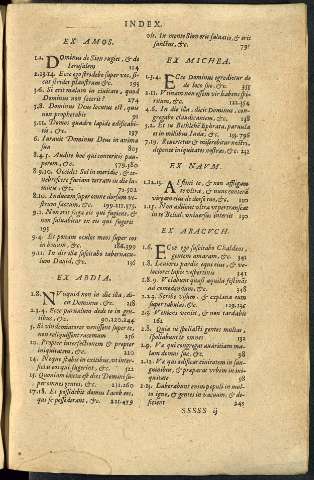 INDEX.
EX AMOS.
1.2. Dominus de Sion rugiet, & de
Ierusalem 124
2.13.14. Ecce ego stridebo super vos, si-
cut stridet plaustrum &c. 195
3.6. Si erit malum in ciuitate, quod
Dominus non fecerit? 274
3.8. Dominus Deus locutus est, quis
non prophetabit 91
5.11. Domos quadro lapide ædificabi-
tis, &c. 197
6. Iurauit Dominus Deus in anima
sua
8.4.5. Audite hoc qui conteritis pau-
perem, &c. 179.380
8.9.10. Occidet Sol in meridie, & te-
nebrescere faciam terram in die lu-
minis, &c. 71.502
8.10. Inducam super omne dorsum ve-
strum saccum, &c.
9.1. Non erit fuga eis qui fugient, &
non saluabitur ex eis qui fugerit
295
9.4. Et ponam oculos meos super eos
in malum, &c.
9.11. In die illa suscitabo tabernacu-
lum Dauid, &c. 196
EX ABDIA.
1.8. Nunquid non in die illa, di-
cit Dominus, &c. 218
2.3.4. Ecce paruulum dedi te in gen-
tibus, &c. 90.120.244
5. Si vindemiatores venissent super te,
non reliquissent racemum 236
10. Propter interfectionem & propter
iniquitatem, &c. 220
14. Neque stabis in exitibus, vt inter-
ficias eos qui fugerint, &c. 322
15. Quoniam iuxta est dies Domini su-
per omnes gentes, &c.
17.18. Et possidebit domus Iacob eos,
qui se possederant, &c.
ole. In monte Sion erit saluatio, & erit
sanctus, &c. 791
EX MICHEA.
1.3.4. Ecce Dominus egredietur de
de loco suo, &c. 355
2.11. Vtinam non essem vir habens spi-
ritum, &c.
4.6. In die illa, dicit Dominus, con-
gregabo claudicantem, &c. 298
5.2. Et tu Bethlehe Ephrata, paruula
es in millibus Iuda, &c.
7.19. Reuertetur & miserebitur nostri,
deponet iniquitates nostras, &c.
EX NAVM.
1.12.15. Afflixi te, & non affligam
te vltra, & nunc conteram
virgam eius de dorso tuo, &c.
1.15. Non adiiciet vltra vt pertranseat
in te Belial, vniuersus interiit 190
EX ABACVCH.
1.6. Ecce ego suscitabo Chaldæos,
gentem amaram. &c. 341
1.8. Leuiores pardis equi eius, & ve-
lociores lupis vespertinis
1.8.9. Volabunt quasi aquila festinās
ad comedendum, &c.
2.2.3. Scribe visum, & explana eum
super tabulas, &c.
2.3. Veniens veniet, & non tardabit
&c.
2.8. Quia tu spoliasti gentes multas,
spoliabunt te omnes
2.9. Væ qui congregat auaritiam ma-
lam domui suæ. &c.
2.12. Væ qui ædificat ciuitatem in san-
guinibus, & præparat vrbem in ini-
quitate
2.13. Laborabunt enim populi in mul-
to igne, & gentes in vacuum, & de-
ficient 245
SSSSS ij